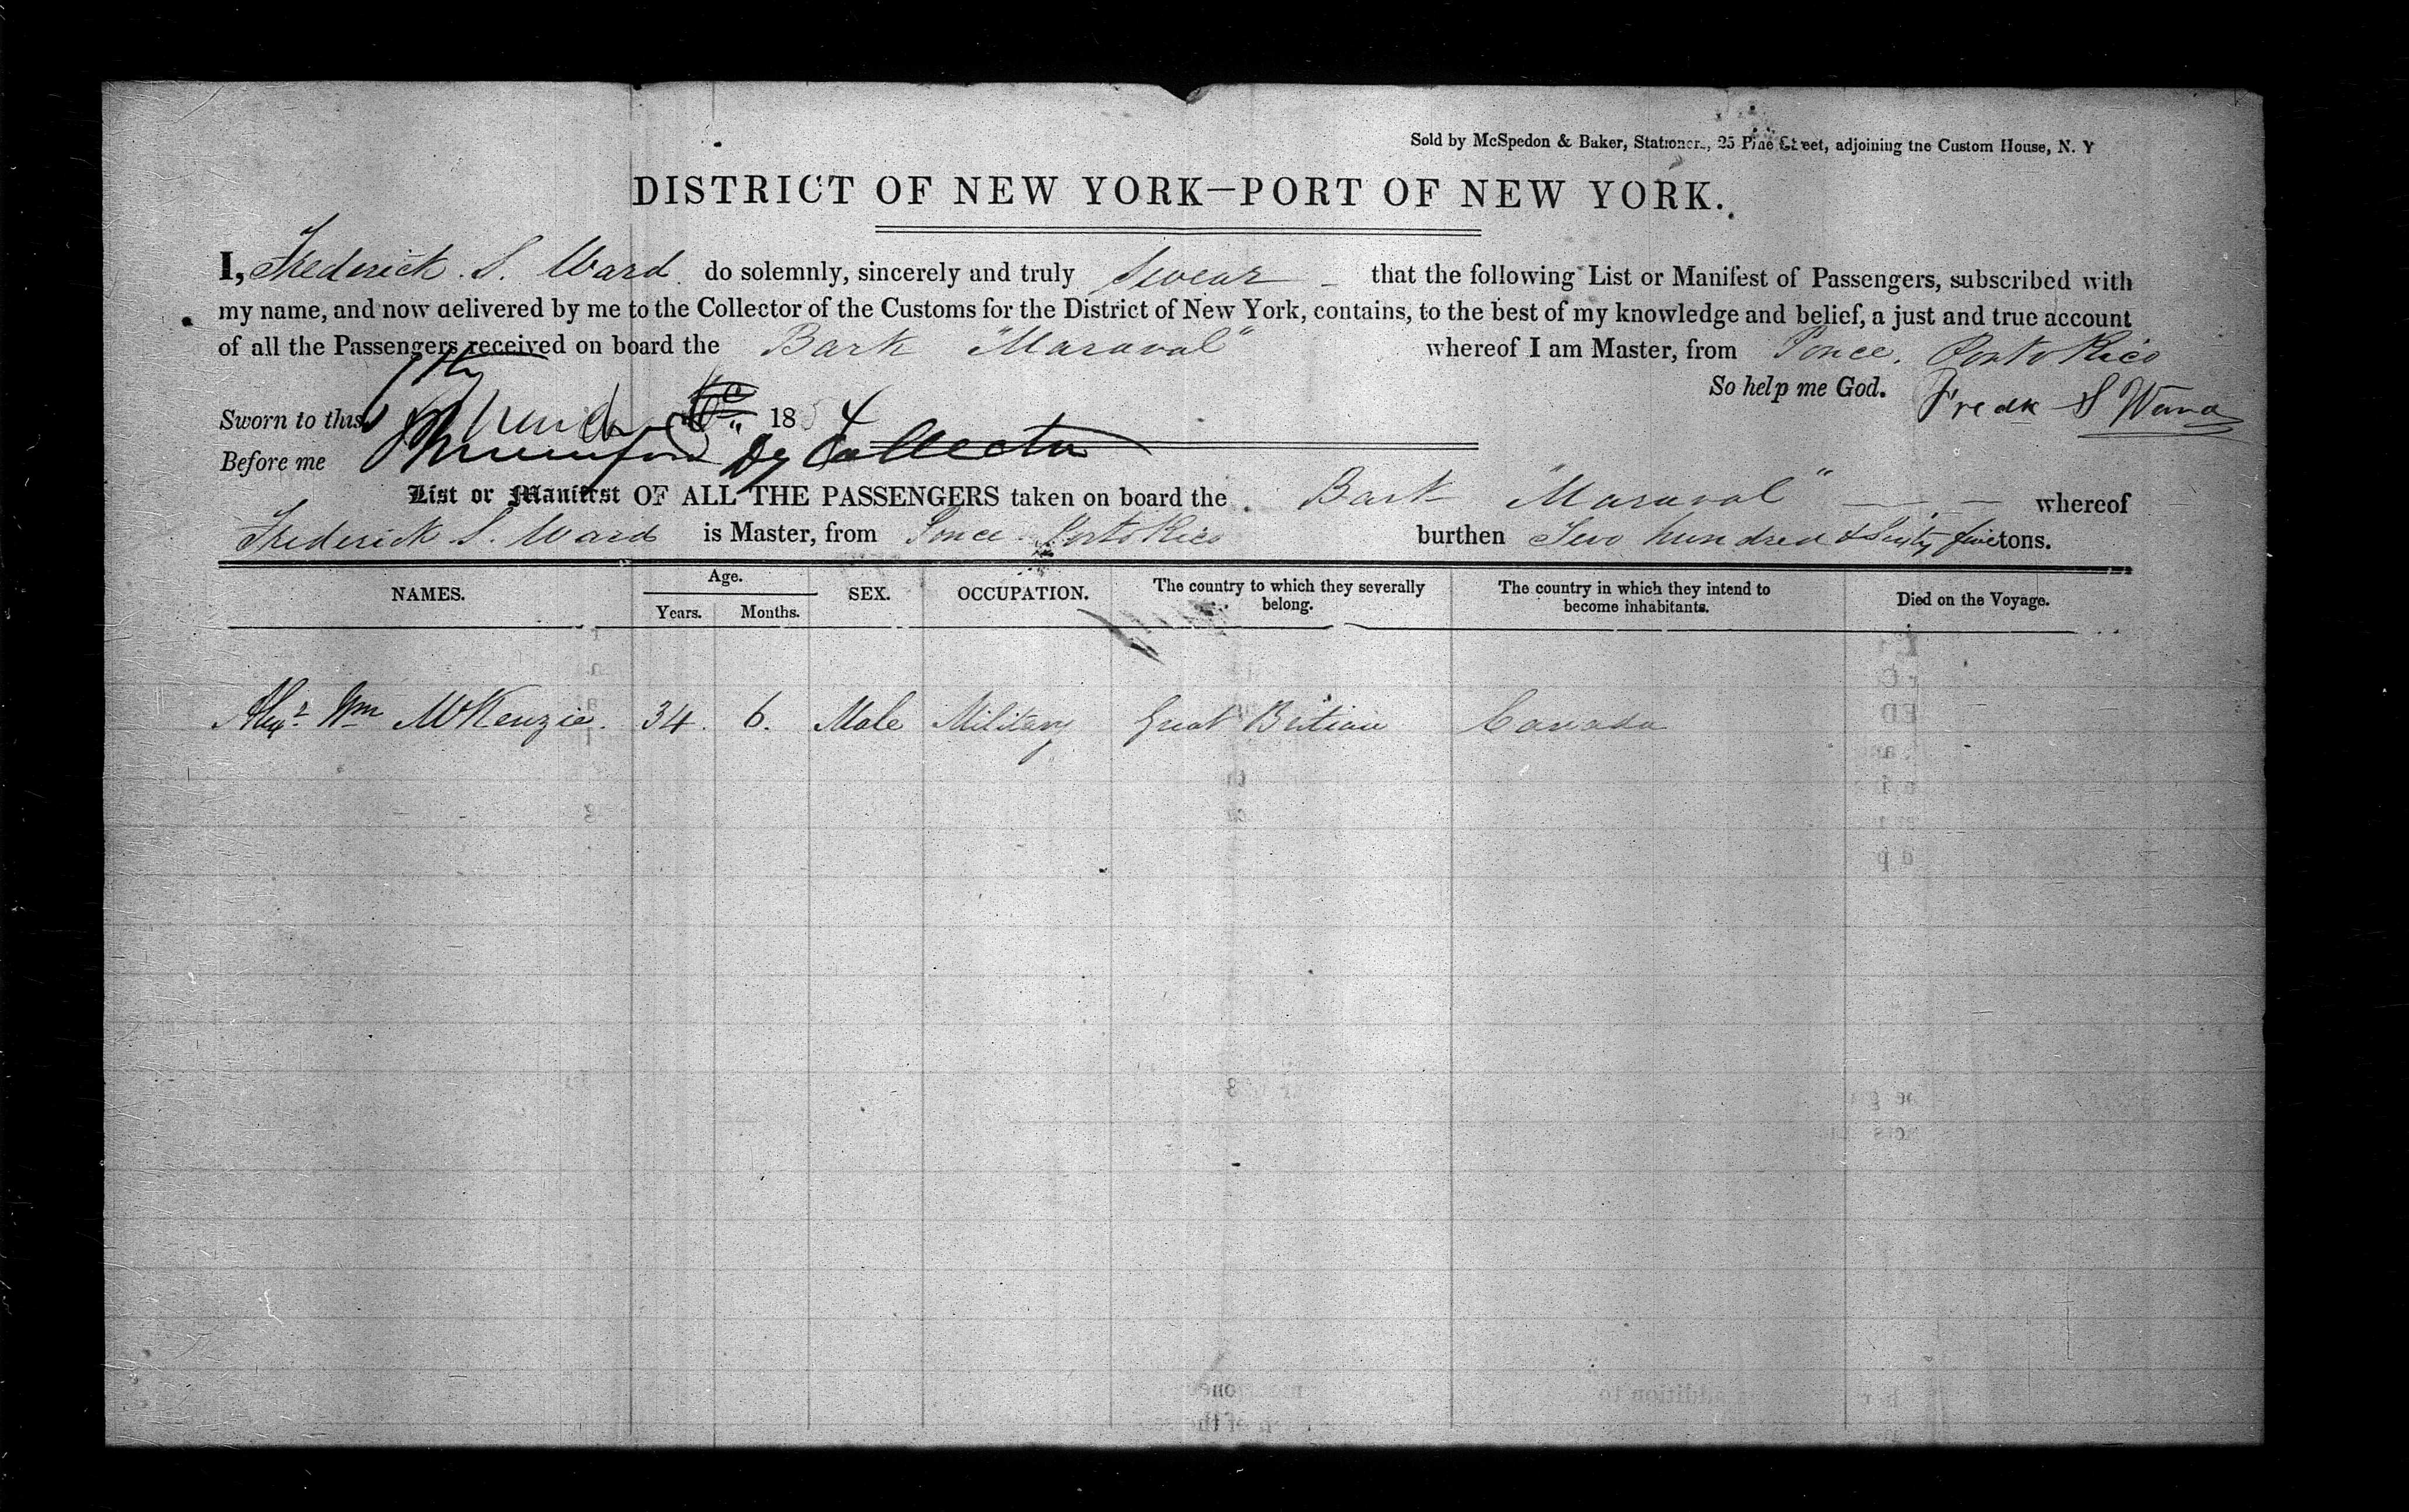 Sold by McSpedon & Baker, Stationers, 25 Pine Street, adjoining the Custom House, N. Y
DISTRICT OF NEW YORK—PORT OF NEW YORK.
I, Frederick. S. Ward. do solemnly, sincerely and truly Swear that the following List or Manifest of Passengers, subscribed with
my name, and now delivered by me to the Collector of the Customs for the District of New York, contains, to the best of my knowledge and belief, a just and true account
of all the Passengers received on board the Bark "Maraval" whereof I am Master, from Ponce. Porto Rico
So help me God. Fredk S Ward
Sworn to this March 1854
Before me Mumford Dy Collector
List or Manifest OF ALL THE PASSENGERS taken on board the Bark "Maraval" whereof
Frederick S. Ward is Master, from Ponce Porto Rico burthen Two hundred & Sixty five tons.
NAMES. Age. SEX. OCCUPATION. The country to which they severally belong. The country in which they intend to become inhabitants. Died on the Voyage.
Years. Months.
Alexr Wm McKenzie. 34. 6. Male Military Great Britian Canada